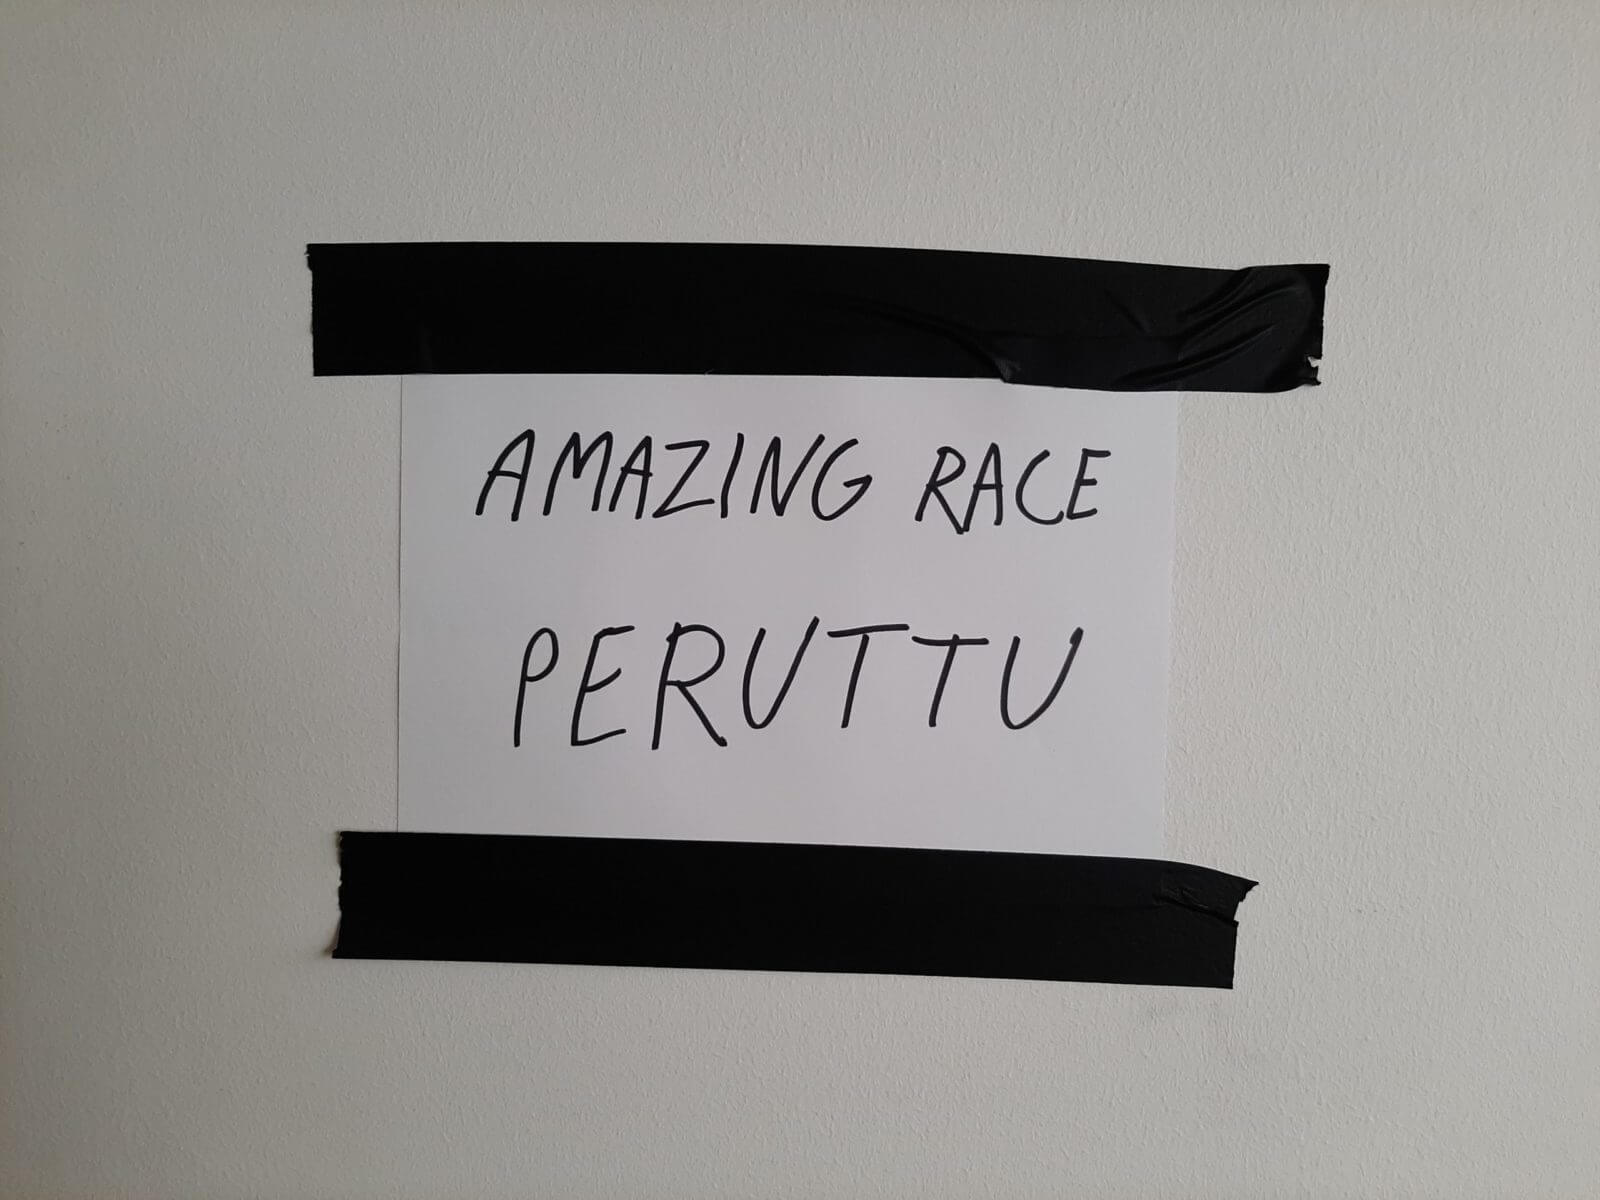 AMAZING RACE
PERUTTU